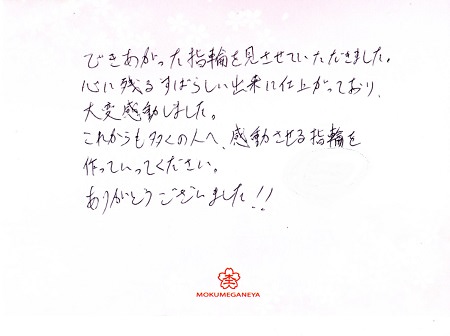 できあがった指輪を見させていただきました。
心に残るすばらしい出来に仕上がっており、
大変感動しました。
これからも多くの人へ、感動させる指輪を
作っていってください。
ありがとうございました!!
MOKUMEGANEYA